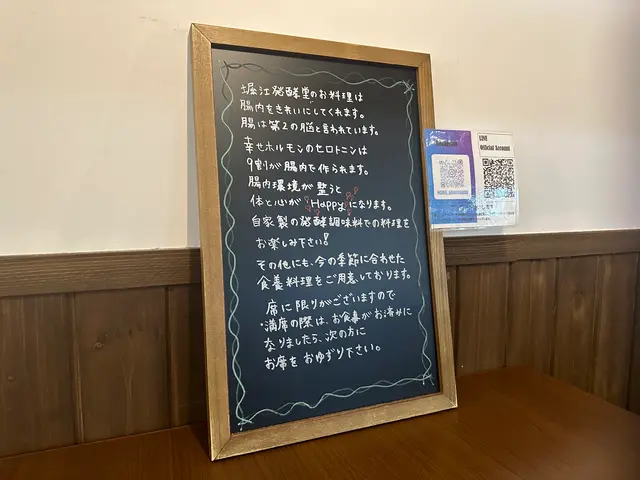 堀江発酵堂のお料理は
腸内をきれいにしてくれます。
腸は第2の脳と言われています。
幸せホルモンのセロトニンは
9割が腸内で作られます。
腸内環境が整うと
体と心がHappyになります。
自家製の発酵調味料での料理を
お楽しみ下さい!
その他にも、今の季節に合わせた
食養料理をご用意しております。
席に限りがございますので
・満席の際は、お食事がお済みに
なりましたら、次の方に
お席をおゆずり下さい。
LINE
Official Account